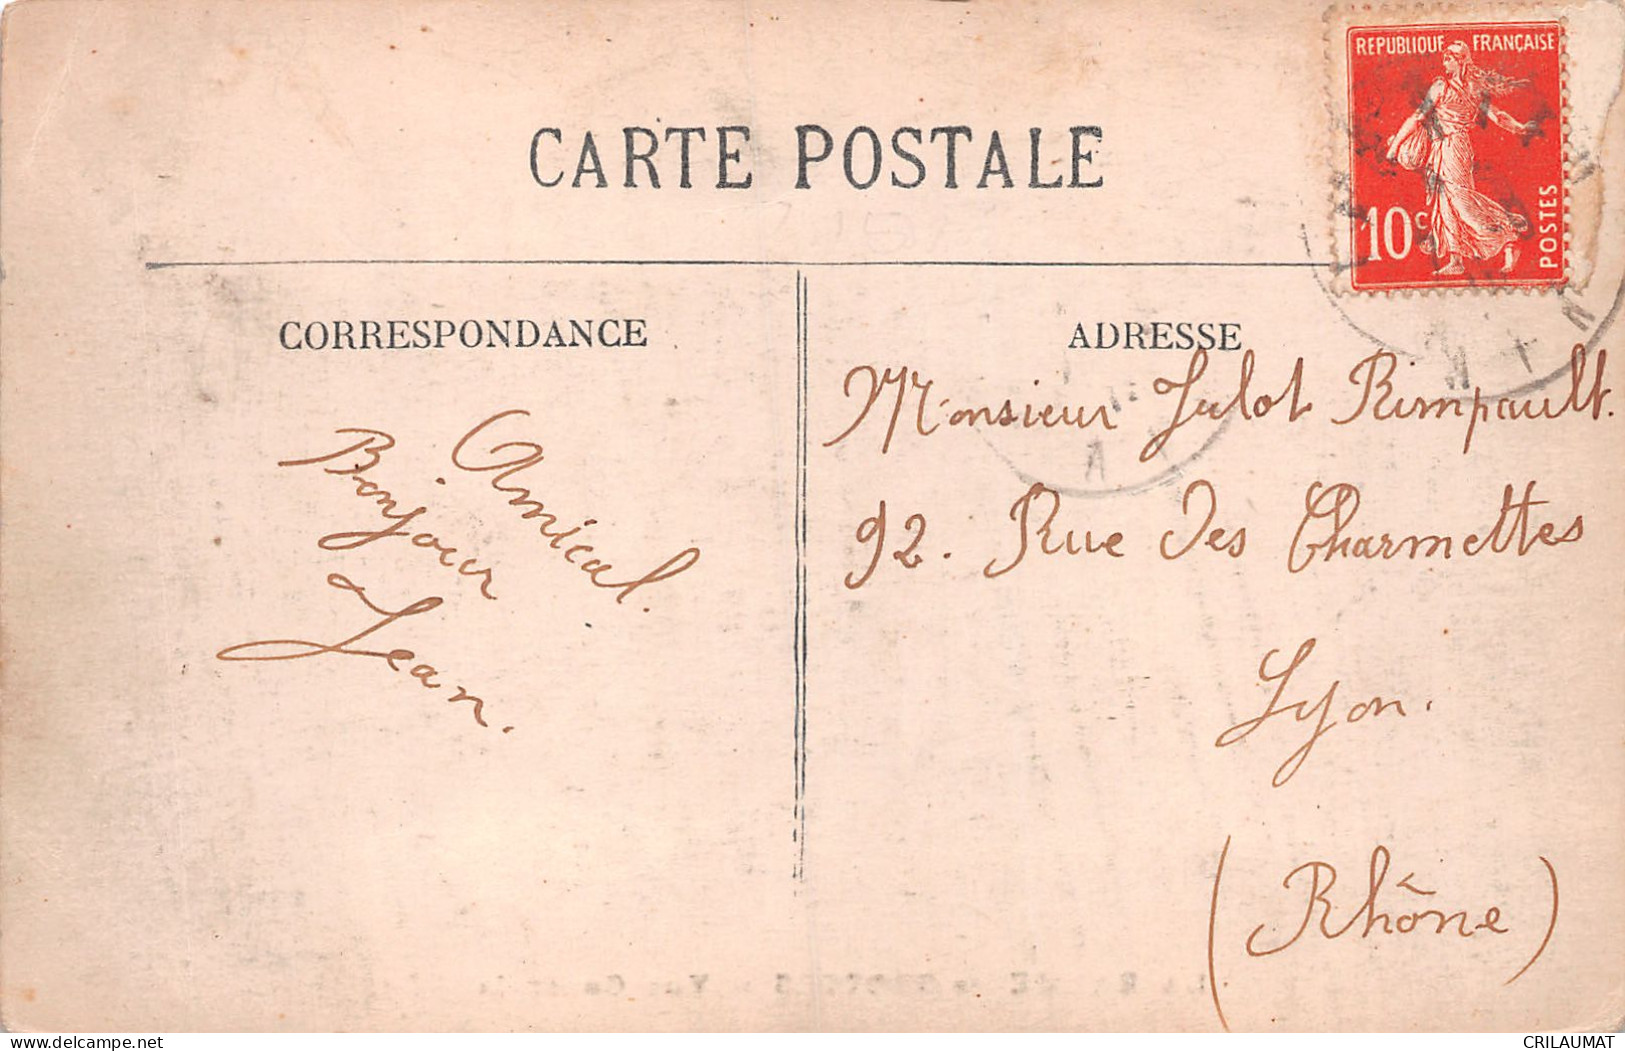 REPUBLIQUE FRANÇAISE
10c POSTES
CARTE POSTALE
CORRESPONDANCE
Amical
Bonjour
Jean.
ADRESSE
Monsieur Julot Rimpault.
92. Rue Des Charmettes
Lyon.
(Rhône)
CRILAUMAT